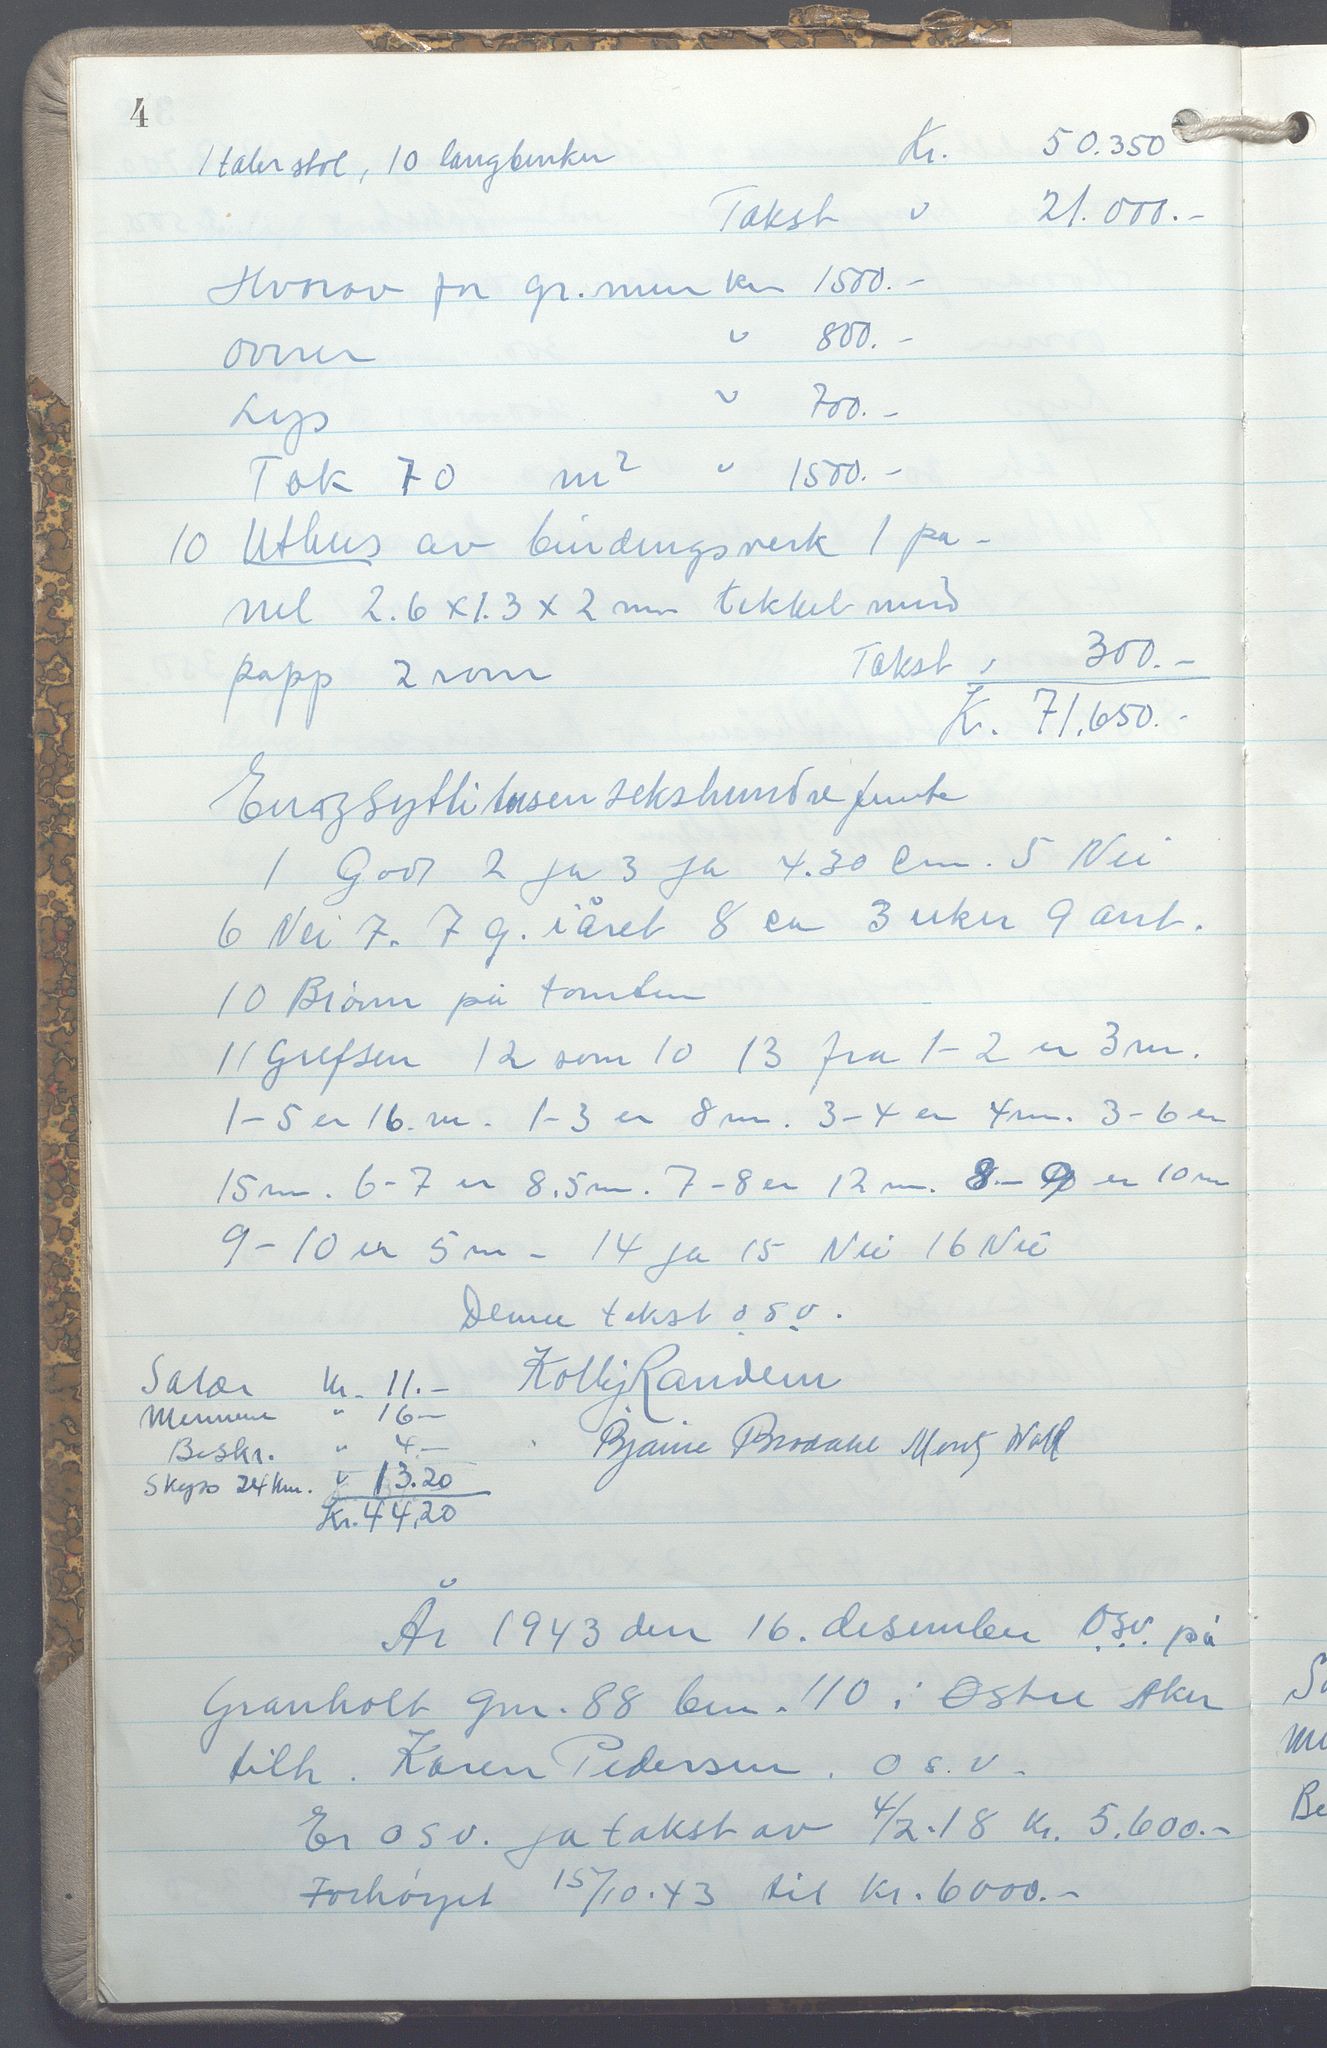 4
1 talerstol, 10 langbenker Kr. 50.350
Takst " 21.000.-
Hvorav for gr.mur kr 1500.-
ovner " 800.-
Lys " 700.-
Tak 70 m² " 1500.-
10 Uthus av bindingsverk 1 pa-
nel 2.6 x 1.3 x 2 m tekket med
papp 2 rom Takst " 300.-
Kr. 71.650.-
Enogsyttitusensekshundrefemti
1 God 2 ja 3 ja 4. 30 cm. 5 Nei
6 Nei 7. 7 g. i året 8 ca 3 uker 9 ant.
10 Brønn på tomten
11 Grefsen 12 som 10 13 fra 1-2 er 3 m.
1-5 er 16. m. 1-3 er 8 m. 3-4 er 4 m. 3-6 er
15 m. 6-7 er 8.5 m. 7-8 er 12 m. 8-9 er 10 m
9-10 er 5 m - 14 ja 15 Nei 16 Nei
Denne takst o s v.
Salær kr. 11.- Kolbj Randem
Mennene " 16.-
Bjarne Brodahl
Beskr. " 4.-
Skyss 24 km. " 13.20
Kr. 44,20
År 1943 den 16. desember o.s.v. på
Granholt gnr. 88 bnr. 110 i Østre Aker
tilh. Karen Pedersen. o s. v.
Er o s v. ja takst av 4/2.18 Kr. 5.600.-
Forhøyet 15/10.43 til kr. 6000.-